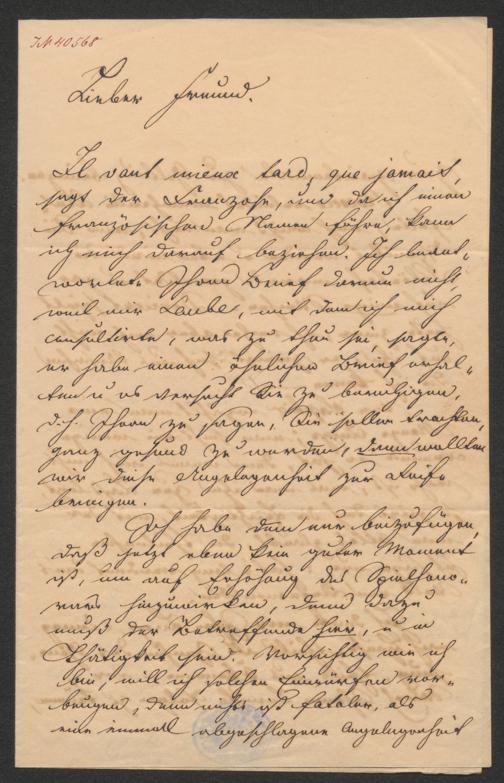 IN 40568
Lieber Freund.
Il vaut mieux tard, que jamais,
sagt der Franzose, und da ich einen
französischen Namen führe, kann
ich mich darauf beziehen. Ich beant-
wortete Ihren Brief darum nicht,
weil mir Laube, mit dem ich mich
consultirte, was zu thun sei, sagte,
er habe einen ähnlichen Brief erhal-
ten u es versucht Sie zu beruhigen,
d. h. Ihnen zu sagen, Sie sollen trachten,
ganz gesund zu werden, dann wollten
wir diese Angelegenheit zur Reife
bringen.
Ich habe dem nur beizufügen,
daß jetzt eben kein guter Moment
ist, um auf Erhöhung des Spielhono-
rars hinzuwirken, denn dazu
muß der Betreffende hier, u in
Thätigkeit sein. Vorsichtig wie ich
bin, will ich solchen Einwürfen vor-
beugen, denn nichts ist fataler, als
eine einmal abgeschlagene Angelegenheit